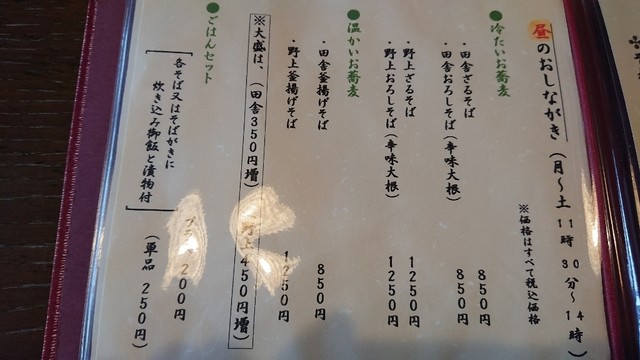 昼のおしながき（月〜土 11時30分〜14時）
※価格はすべて税込価格
●冷たいお蕎麦
・田舎ざるそば 850円
・田舎おろしそば（辛味大根） 850円
・野上ざるそば 1250円
・野上おろしそば（辛味大根） 1250円
●温かいお蕎麦
・田舎釜揚げそば 850円
・野上釜揚げそば 1250円
※大盛は、（田舎350円増）（野上450円増）
●ごはんセット
各そば又はそばがきに
炊き込み御飯と漬物付
プラス 200円
（単品 250円）